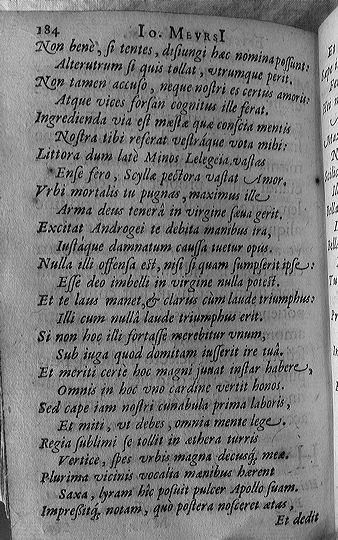 184 Io. MEVRSI
Non benè, si tentes, disiungi hæc nomina possunt:
Alterutrum si quis tollat, vtrumque perit.
Non tamen accuso, neque nostri es certus amoris:
Atque vices forsan cognitus ille ferat.
Ingredienda via est mæstæ quæ conscia mentis
Nostra tibi referat vestráque vota mihi:
Littora dum latè Minos Lelegeia vastas
Ense fero, Scyllæ pectora vastat Amor.
Vrbi mortalis tu pugnas, maximus ille
Arma deus tenerâ in virgine sæua gerit.
Excitat Androgei te debita manibus ira,
Iustáque damnatum caussa tuetur opus.
Nulla illi offensa est, nisi si quam sumpserit ipse:
Esse deo imbelli in virgine nulla potest.
Et te laus manet, & clarus cum laude triumphus:
Illi cum nullâ laude triumphus erit.
Si non hoc illi fortasse merebitur vnum,
Sub iuga quod domitam iusserit ire tuâ.
Et meriti certe hoc magni iuuat instar habere,
Omnis in hoc vno cardine vertit honos.
Sed cape iam nostri cunabula prima laboris,
Et miti, vt debes, omnia mente lege.
Regia sublimi se tollit in æthera turris
Vertice, spes vrbis magna decusq; meæ.
Plurima vicinis vocalia mœnibus hærent
Saxa, lyram hîc posuit pulcer Apollo suam.
Impreßitq; notam, quo postera nosceret ætas,
Et dedit